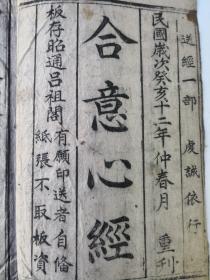 送經一部 虔誠依行
民國歲次癸亥十二年仲春月 重刊
合意心經
板存昭通呂祖閣 有願印送者自偹
紙張不取板資